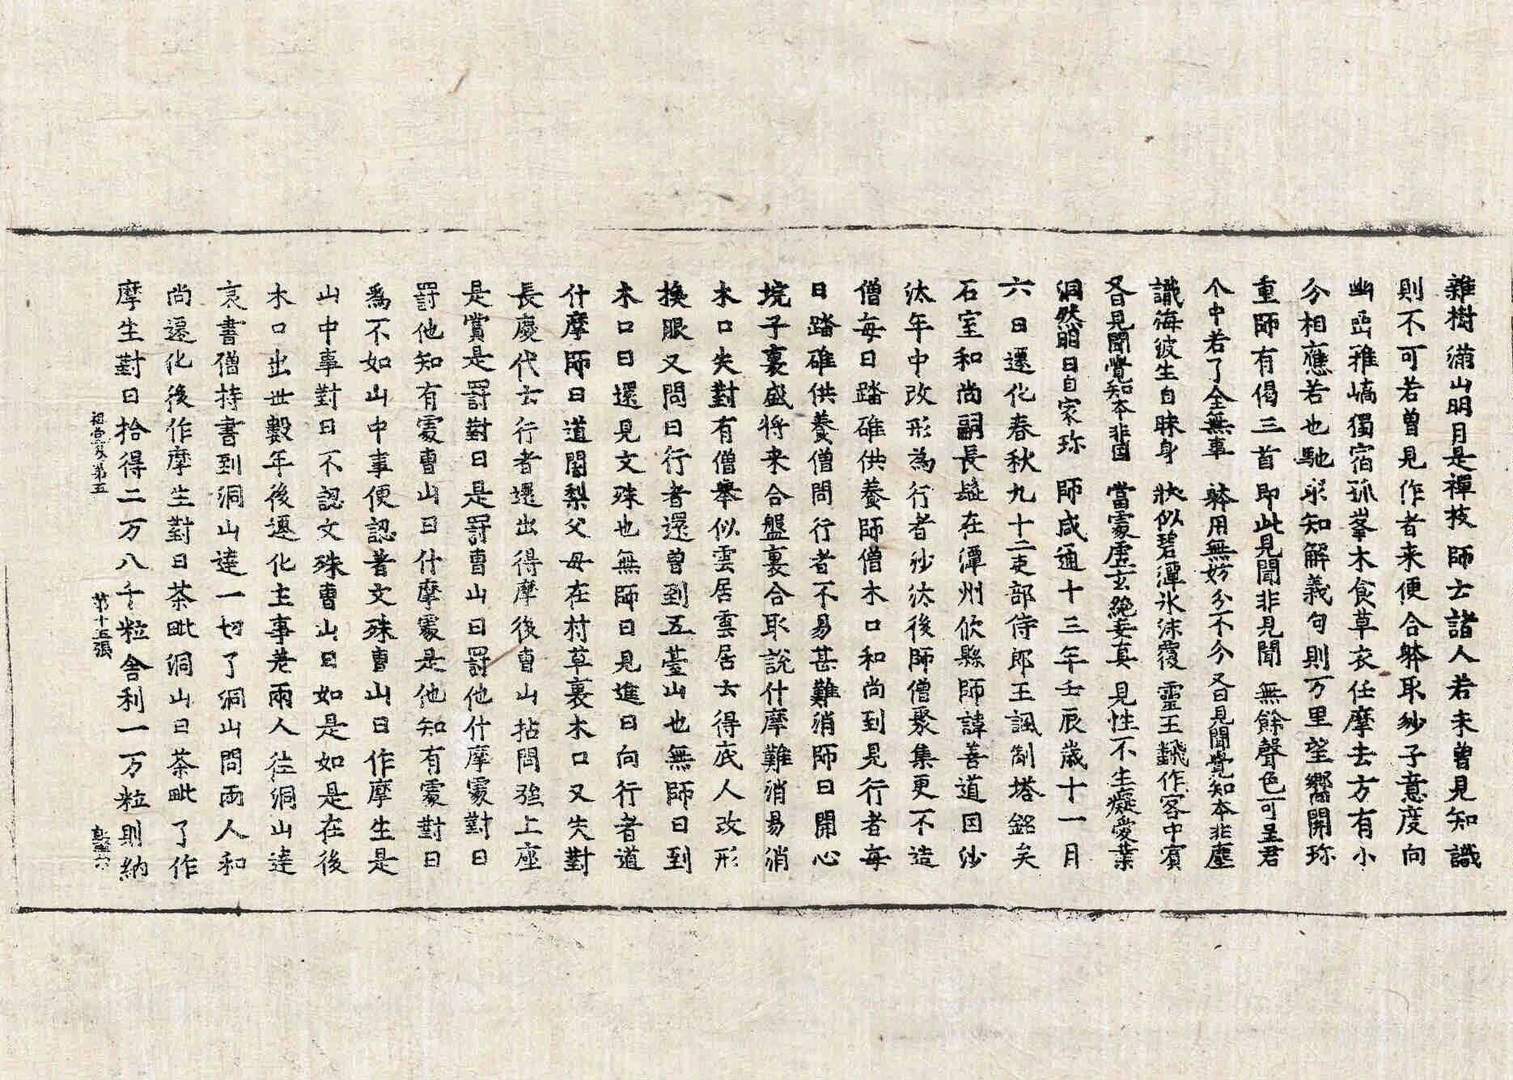 雜樹滿山明月是禪枝師云諸人若未曾見知識
則不可若曾見作者来便合躰取些子意度向
幽嵒雅嶠獨宿孤峯木食草衣任摩去方有小
分相應若也馳求知解義句則万里望嚮開珎
重師有偈三首即此見聞非見聞無餘聲色可呈君
个中若了全無事躰用無妨分不分又曰見聞覺知本非塵
識海彼生自昧身狀似碧潭氷沫覆靈王翻作客中賓
又曰見聞覺知本非因當處虛玄絶妄真見性不生癡愛業
洞然明白自家珎師咸通十三年壬辰歲十一月
六日遷化春秋九十二吏部侍郎王諷制塔銘矣
石室和尚嗣長髭在潭州攸縣師諱善道因沙
汰年中改形為行者沙汰後師僧聚集更不造
僧每日踏碓供養師僧木口和尚到見行者每
日踏碓供養僧問行者不易甚難消師曰開心
垸子裏盛将来合盤裏合取說什摩難消易消
木口失對有僧舉似雲居雲居云得底人改形
換眼又問曰行者還曾到五臺山也無師曰到
木口曰還見文殊也無師曰見進曰向行者道
什摩師曰道闍梨父母在村草裏木口又失對
長慶代云行者還出得摩後曹山拈問強上座
是賞是罸對曰是罸曹山曰罸他什摩處對曰
罸他知有處曹山曰什摩處是他知有處對曰
為不如山中事便認著文殊曹山曰作摩生是
山中事對曰不認文殊曹山曰如是如是在後
木口出世數年後遷化主事差兩人往洞山達
哀書僧持書到洞山達一切了洞山問兩人和
尚遷化後作摩生對曰荼毗洞山曰荼毗了作
摩生對曰拾得二万八千粒舍利一万粒則納
祖堂第五 第十五張